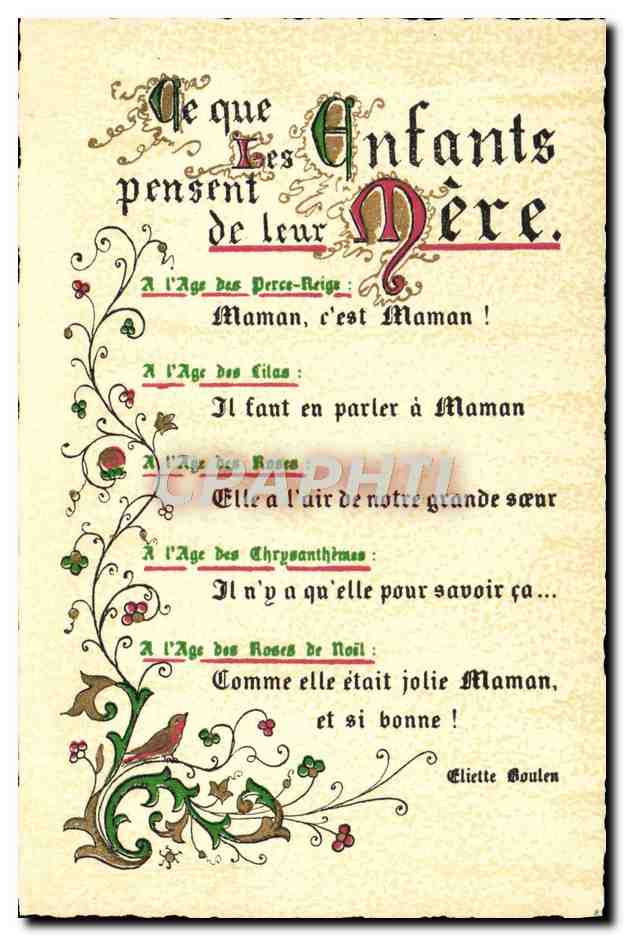 Ce que
Les Enfants
pensent
de leur Mère.
A l'Age des Perce-Neige :
Maman, c'est Maman !
A l'Age des Lilas :
Il faut en parler à Maman
A l'Age des Roses :
CPAPHTI
Elle a l'air de notre grande sœur
A l'Age des Chrysanthèmes :
Il n'y a qu'elle pour savoir ça...
A l'Age des Roses de Noël :
Comme elle était jolie Maman,
et si bonne !
Eliette Boulen